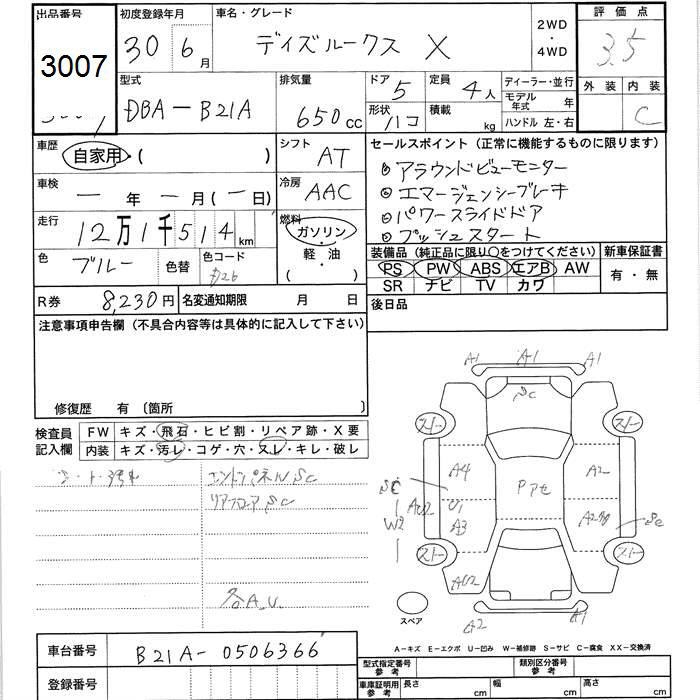 出品番号 初度登録年月 車名・グレード 2WD・4WD 評価点
3007 30 6月 デイズルークス X 3.5
型式 排気量 ドア 5 定員 4人 ディーラー・並行 外装 内装
DBA-B21A 650cc 形状 ハコ 積載 kg モデル年式 年 C
ハンドル 左・右
車歴 自家用・( ) シフト AT セールスポイント (正常に機能するものに限ります)
① アラウンドビューモニター
車検 ー年ー月(ー日) 冷房 AAC ② エマージェンシーブレーキ
③ パワースライドドア
走行 12万1千514km 燃料 ガソリン・軽・油 ( ) ④ プッシュスタート
色 ブルー 色替 色コード 装備品 (純正品に限り○をつけてください) 新車保証書
PS PW ABS エアB AW 有・無
SR ナビ TV カワ
R券 8,230円 名変通知期限 月 日 後日品
注意事項申告欄 (不具合内容等は具体的に記入して下さい)
修復歴 有 〔箇所 〕
検査員記入欄 FW キズ・飛石・ヒビ割・リペア跡・X要
内装 キズ・汚レ・コゲ・穴・スレ・キレ・破レ
エントランパネルSC
リアフロアSC
各A.U.
A1 A1 A1
SC
ストー ストー
A4 Pアセ A2
SC AU2 U1
W2 A3 SC
ストー ストー
AU2
スペア A2 A1
A-キズ E-エクボ U-凹み W-補修跡 S-サビ C-腐食 XX-交換済
車台番号 B21A-0506366 型式指定番号 参考 類別区分番号 参考
登録番号 車庫証明用 参考 長さ cm 幅 cm 高さ cm